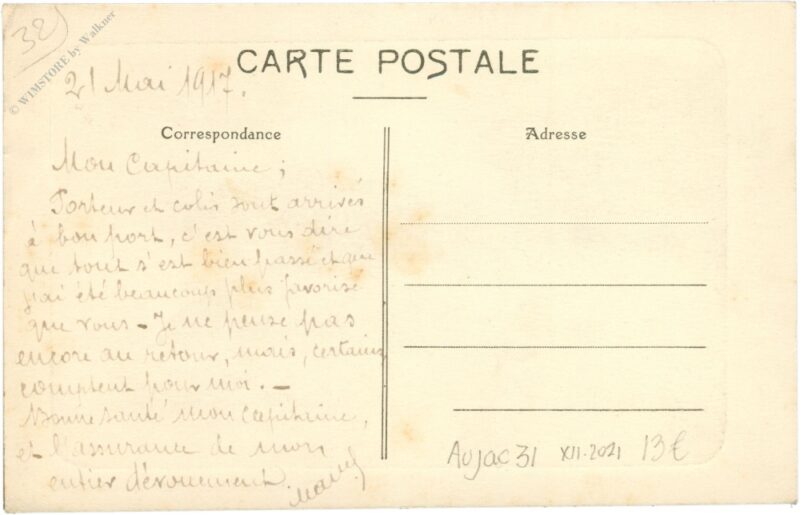 32)
© WIMSTORE by Walkner
CARTE POSTALE
21 Mai 1917.
Correspondance
Adresse
Mon Capitaine ;
Porteur et colis sont arrivés
à bon port, c'est vous dire
que tout s'est bien passé et que
j'ai été beaucoup plus favorisé
que vous - Je ne pense pas
encore au retour, mais, certains
comptent pour moi. -
Bonne santé mon Capitaine,
et l'assurance de mon
entier dévouement.
Aujac 31 XII-2021 13€